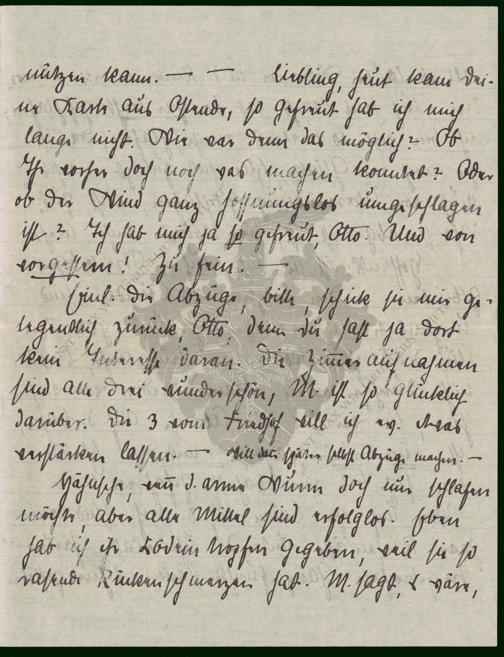 nützen kann. — — Liebling, heut kam dei-
ne Karte aus Ostende, so gefreut hab ich mich
lange nicht. Wie war denn das möglich? Ob
Ihr vorher doch noch was machen konntet? Oder
ob der Wind ganz hoffnungslos umgeschlagen
ist? Ich hab mich ja so gefreut, Otto. Und von
vorgestern! Zu fein. —
die Abzüge, bitte, schick sie mir ge-
legentlich zurück, Otto, denn du hast ja dort
kein Interesse daran. Die Zimmeraufnahmen
sind alle drei wunderschön, M. ist so glücklich
darüber. Die 3 vom Friedhof will ich ev. etwas
verstärken lassen. — will dann später selbst Abzüge machen. —
wenn d. arme Wurm doch nur schlafen
möchte, aber alle Mittel sind erfolglos. Eben
hab ich ihr gegeben, weil sie so
rasende Rückenschmerzen hat. M. sagt, es wäre,